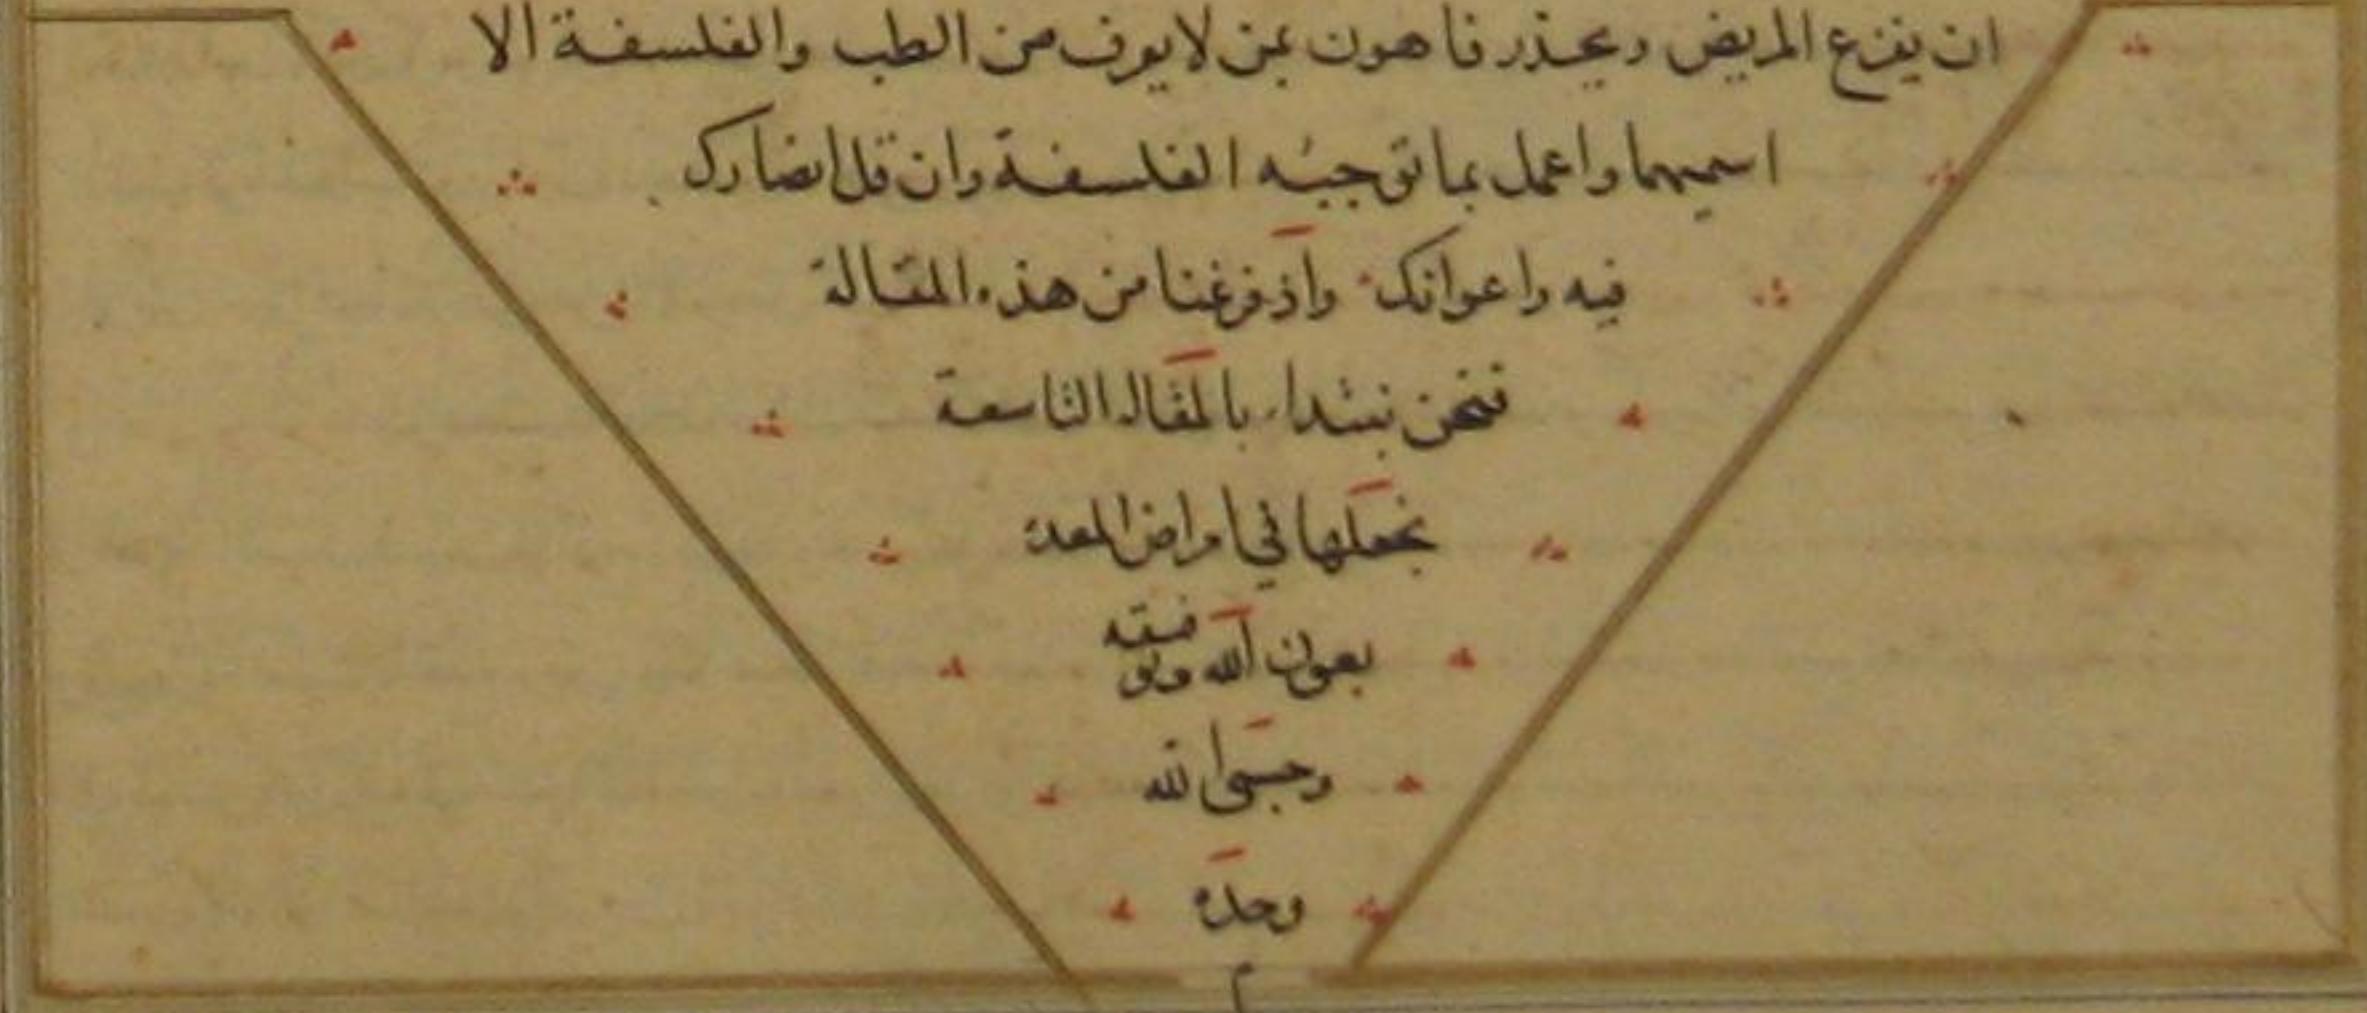 ان يفزع المريض ويحذر فأهون بمن لا يعرف من الطب والفلسفة الا
اسميهما واعمل بما توجبه الفلسفة وان قل انصارك
فيه واعوانك واذ فرغنا من هذه المقالة
فنحن نبتداء بالمقالة التاسعة
نجعلها في امراض المعدة
بعون الله وتوفيقه
وحسبى الله
وحده
م